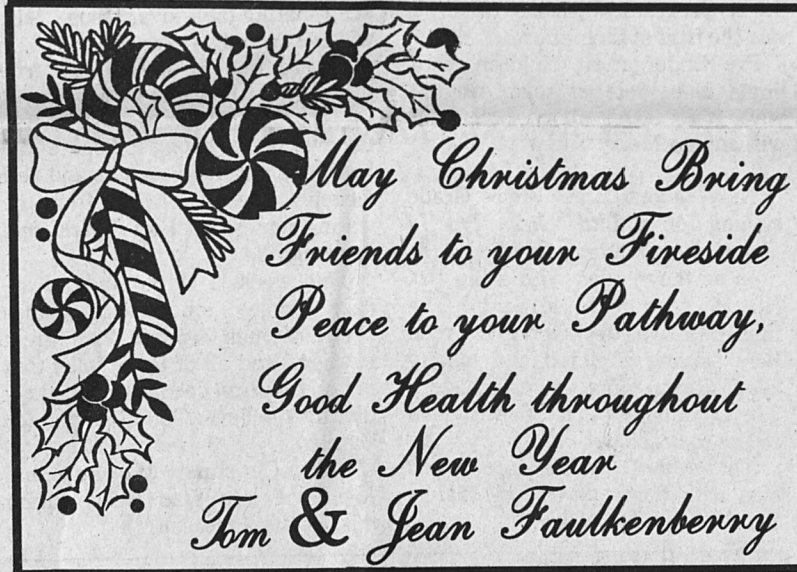 May Christmas Bring
Friends to your Fireside
Peace to your Pathway,
Good Health throughout
the New Year
Tom & Jean Faulkenberry